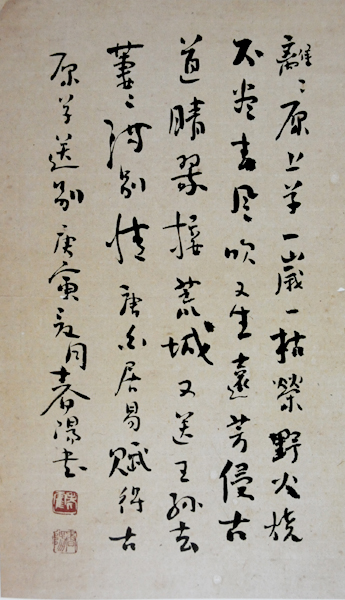 離〻原上草一歲一枯榮野火燒
不盡春風吹又生遠芳侵古
道晴翠接荒城又送王孫去
萋〻滿別情唐白居易賦得古
原草送別庚寅夏月春陽書